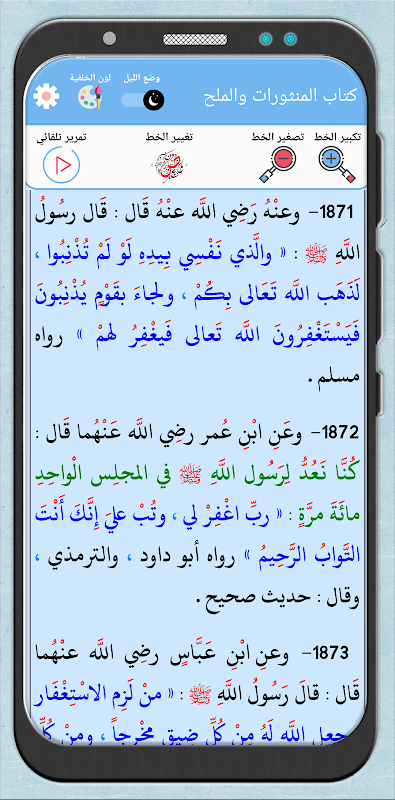 كتاب المنثورات والملح
وضع الليل
لون الخلفية
تكبير الخط
تصغير الخط
تغيير الخط
تمرير تلقائي
1871- وعنْهُ رَضِي اللَّه عنْهُ قَال : قَال رسُولُ
اللَّهِ ﷺ : « والَّذي نَفْسِي بِيدِهِ لَوْ لَمْ تُذْنِبُوا ،
لَذَهَب اللَّه تَعَالى بِكُمْ ، ولجاءَ بقَوْمٍ يُذْنِبُونَ
فَيَسْتَغْفِرُونَ اللَّه تَعالى فَيغْفِرُ لهمْ » رواه
مسلم .
1872- وعَنِ ابْنِ عُمر رضِي اللَّه عَنْهُما قَال :
كُنَّا نَعُدُّ لِرَسُول اللَّهِ ﷺ في المجلِس الْواحِدِ
مائَةَ مرَّةٍ : « ربِّ اغْفِرْ لي ، وتُبْ عليَ إِنَّكَ أَنْتَ
التَّوابُ الرَّحِيمُ » رواه أبو داود ، والترمذي ،
وقال : حديث صحيح .
1873- وعنِ ابْنِ عَبَّاسٍ رضِي اللَّه عنْهُما
قَال : قالَ رَسُولُ اللَّهِ ﷺ : « منْ لَزِم الاسْتِغْفَار
جعل اللَّه لَهُ مِنْ كُلِّ ضِيقٍ مخْرجاً ، ومنْ كُلِّ